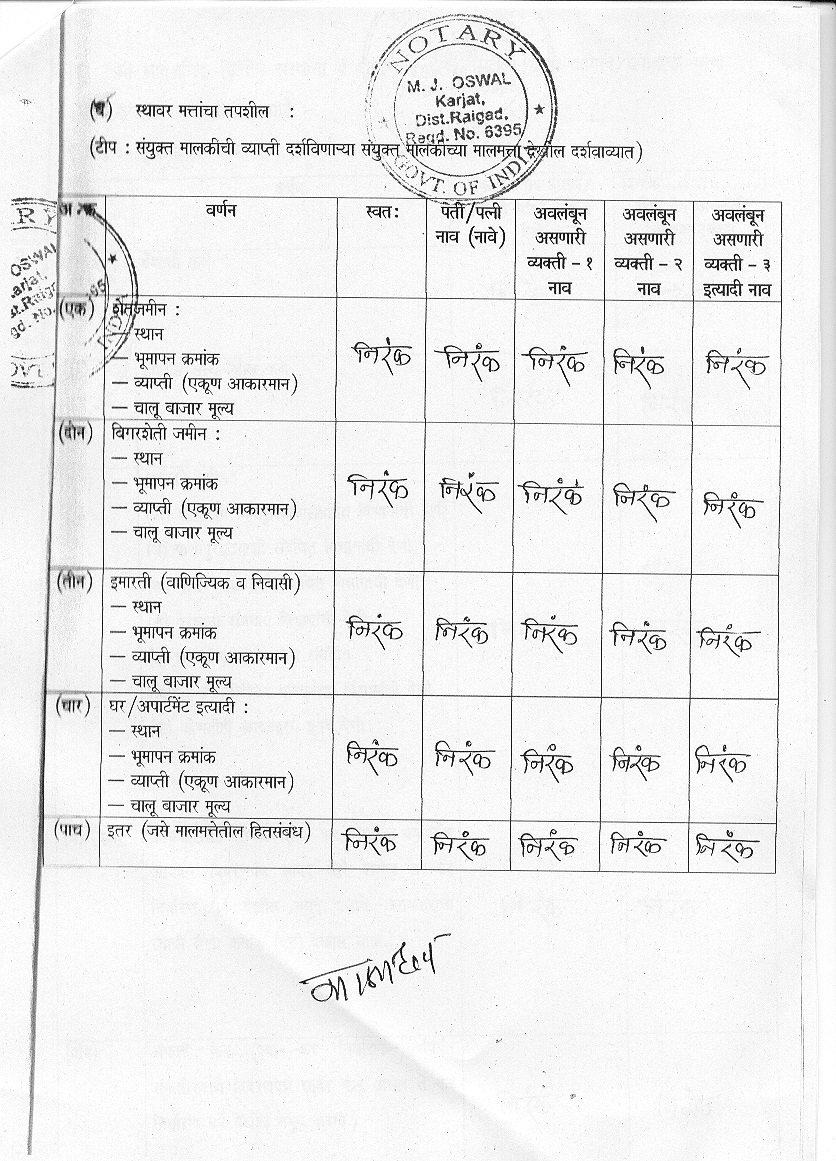 NOTARY
M. J. OSWAL
Karjat,
Dist.Raigad,
Regd. No. 6395
GOVT. OF INDIA
स्थावर मत्तांचा तपशील :
(टीप : संयुक्त मालकीची व्याप्ती दर्शविणाऱ्या संयुक्त मालकीच्या मालमत्ता देखील दर्शवाव्यात)
अ क्र वर्णन स्वत: पती/पत्नी नाव (नावे) अवलंबून असणारी व्यक्ती - १ नाव अवलंबून असणारी व्यक्ती - २ नाव अवलंबून असणारी व्यक्ती - ३ इत्यादी नाव
(एक) शेतजमीन :
— स्थान
— भूमापन क्रमांक निरंक निरंक निरंक निरंक निरंक
— व्याप्ती (एकूण आकारमान)
— चालू बाजार मूल्य
(दोन) विगरशेती जमीन :
— स्थान
— भूमापन क्रमांक निरंक निरंक निरंक निरंक निरंक
— व्याप्ती (एकूण आकारमान)
— चालू बाजार मूल्य
(तीन) इमारती (वाणिज्यिक व निवासी)
— स्थान
— भूमापन क्रमांक निरंक निरंक निरंक निरंक निरंक
— व्याप्ती (एकूण आकारमान)
— चालू बाजार मूल्य
(चार) घर/अपार्टमेंट इत्यादी :
— स्थान
— भूमापन क्रमांक निरंक निरंक निरंक निरंक निरंक
— व्याप्ती (एकूण आकारमान)
— चालू बाजार मूल्य
(पाच) इतर (जसे मालमत्तेतील हितसंबंध) निरंक निरंक निरंक निरंक निरंक